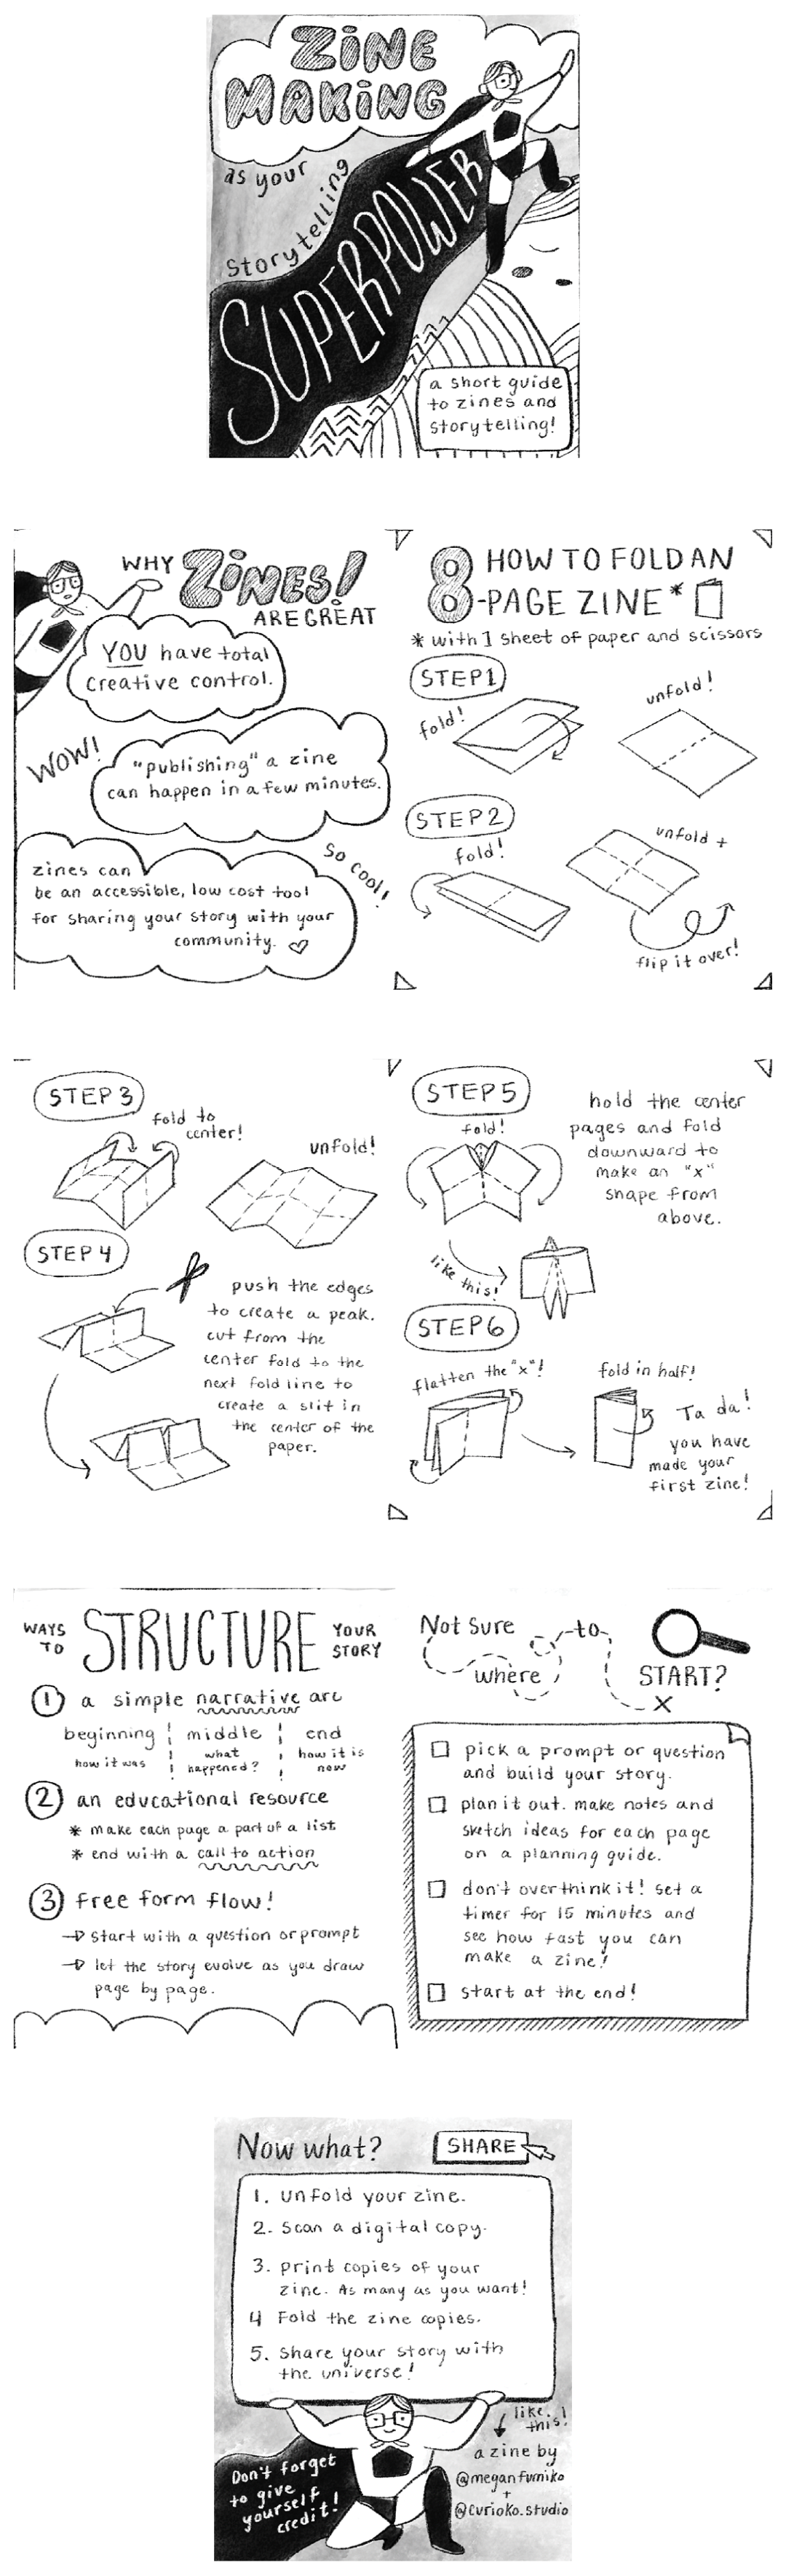 ZINE
MAKING
as your
storytelling
SUPERPOWER
a short guide
to zines and
storytelling!
WHY ZINES!
ARE GREAT
YOU have total
creative control.
WOW!
"publishing" a zine
can happen in a few minutes.
So cool!
zines can
be an accessible, low cost tool
for sharing your story with your
community.
8 HOW TO FOLD AN
-PAGE ZINE*
* with 1 sheet of paper and scissors
STEP 1
fold!
unfold!
STEP 2
fold!
unfold +
flip it over!
STEP 3
fold to
center!
unfold!
STEP 4
push the edges
to create a peak.
cut from the
center fold to the
next fold line to
create a slit in
the center of the
paper.
STEP 5
fold!
hold the center
pages and fold
downward to
make an "x"
shape from
above.
like this!
STEP 6
flatten the "x"!
fold in half!
Ta da!
you have
made your
first zine!
WAYS TO STRUCTURE YOUR STORY
1 a simple narrative arc
beginning middle end
how it was what happened? how it is now
2 an educational resource
* make each page a part of a list
* end with a call to action
3 free form flow!
start with a question or prompt
let the story evolve as you draw
page by page.
Not sure
where
to
START?
X
pick a prompt or question
and build your story.
plan it out. make notes and
sketch ideas for each page
on a planning guide.
don't overthink it! set a
timer for 15 minutes and
see how fast you can
make a zine!
start at the end!
Now what?
SHARE
1. unfold your zine.
2. Scan a digital copy.
3. print copies of your
zine. As many as you want!
4 Fold the zine copies.
5. Share your story with
the universe!
like this!
Don't forget
to give
yourself
credit!
a zine by
@meganfumiko
+
@curioko.studio